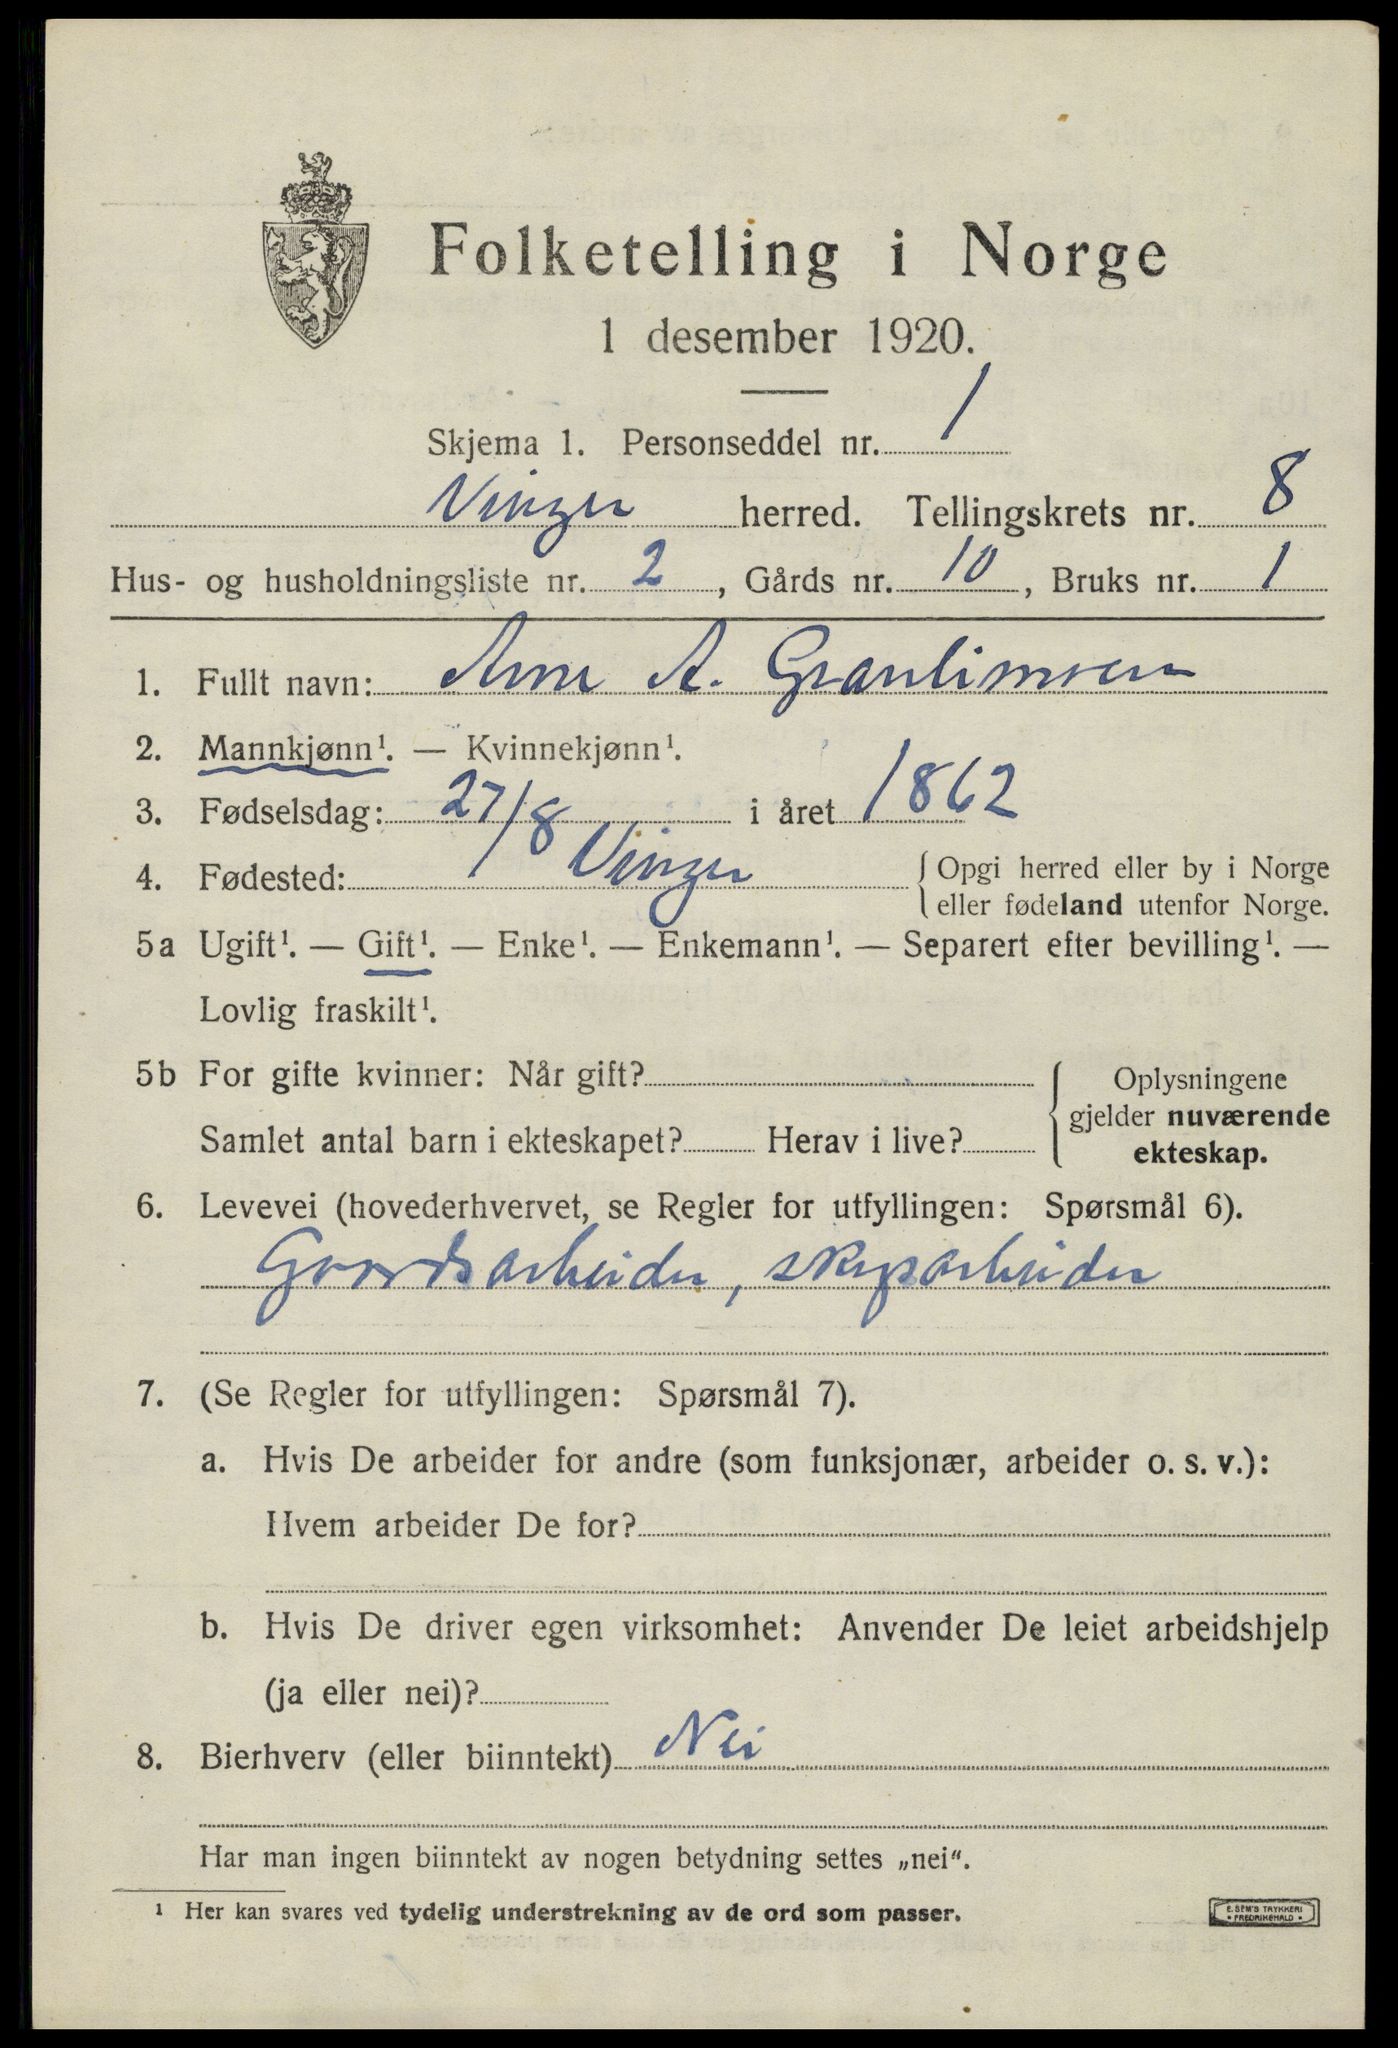 Folketelling i Norge
1 desember 1920.
Skjema 1. Personseddel nr. 1
Vinger herred. Tellingskrets nr. 8
Hus- og husholdningsliste nr. 2, Gårds nr. 10, Bruks nr. 1
1. Fullt navn: Arne A.
2. Mannkjønn¹. — Kvinnekjønn¹.
3. Fødselsdag: 27/8 i året 1862
4. Fødested: Vinger {Opgi herred eller by i Norge
eller fødeland utenfor Norge.
5a Ugift¹. — Gift¹. — Enke¹. — Enkemann¹. — Separert efter bevilling¹. —
Lovlig fraskilt¹.
5b For gifte kvinner: Når gift? { Oplysningene
gjelder nuværende
Samlet antal barn i ekteskapet? Herav i live?
ekteskap.
6. Levevei (hovederhvervet, se Regler for utfyllingen: Spørsmål 6).
Goordsarbeider, skogsarbeider
7. (Se Regler for utfyllingen: Spørsmål 7).
a. Hvis De arbeider for andre (som funksjonær, arbeider o. s. v.):
Hvem arbeider De for?
b. Hvis De driver egen virksomhet: Anvender De leiet arbeidshjelp
(ja eller nei)?
8. Bierhverv (eller biinntekt) Nei
Har man ingen biinntekt av nogen betydning settes „nei“.
¹ Her kan svares ved tydelig understrekning av de ord som passer.
E. SEM'S TRYKKERI
• FREDRIKSHALD •